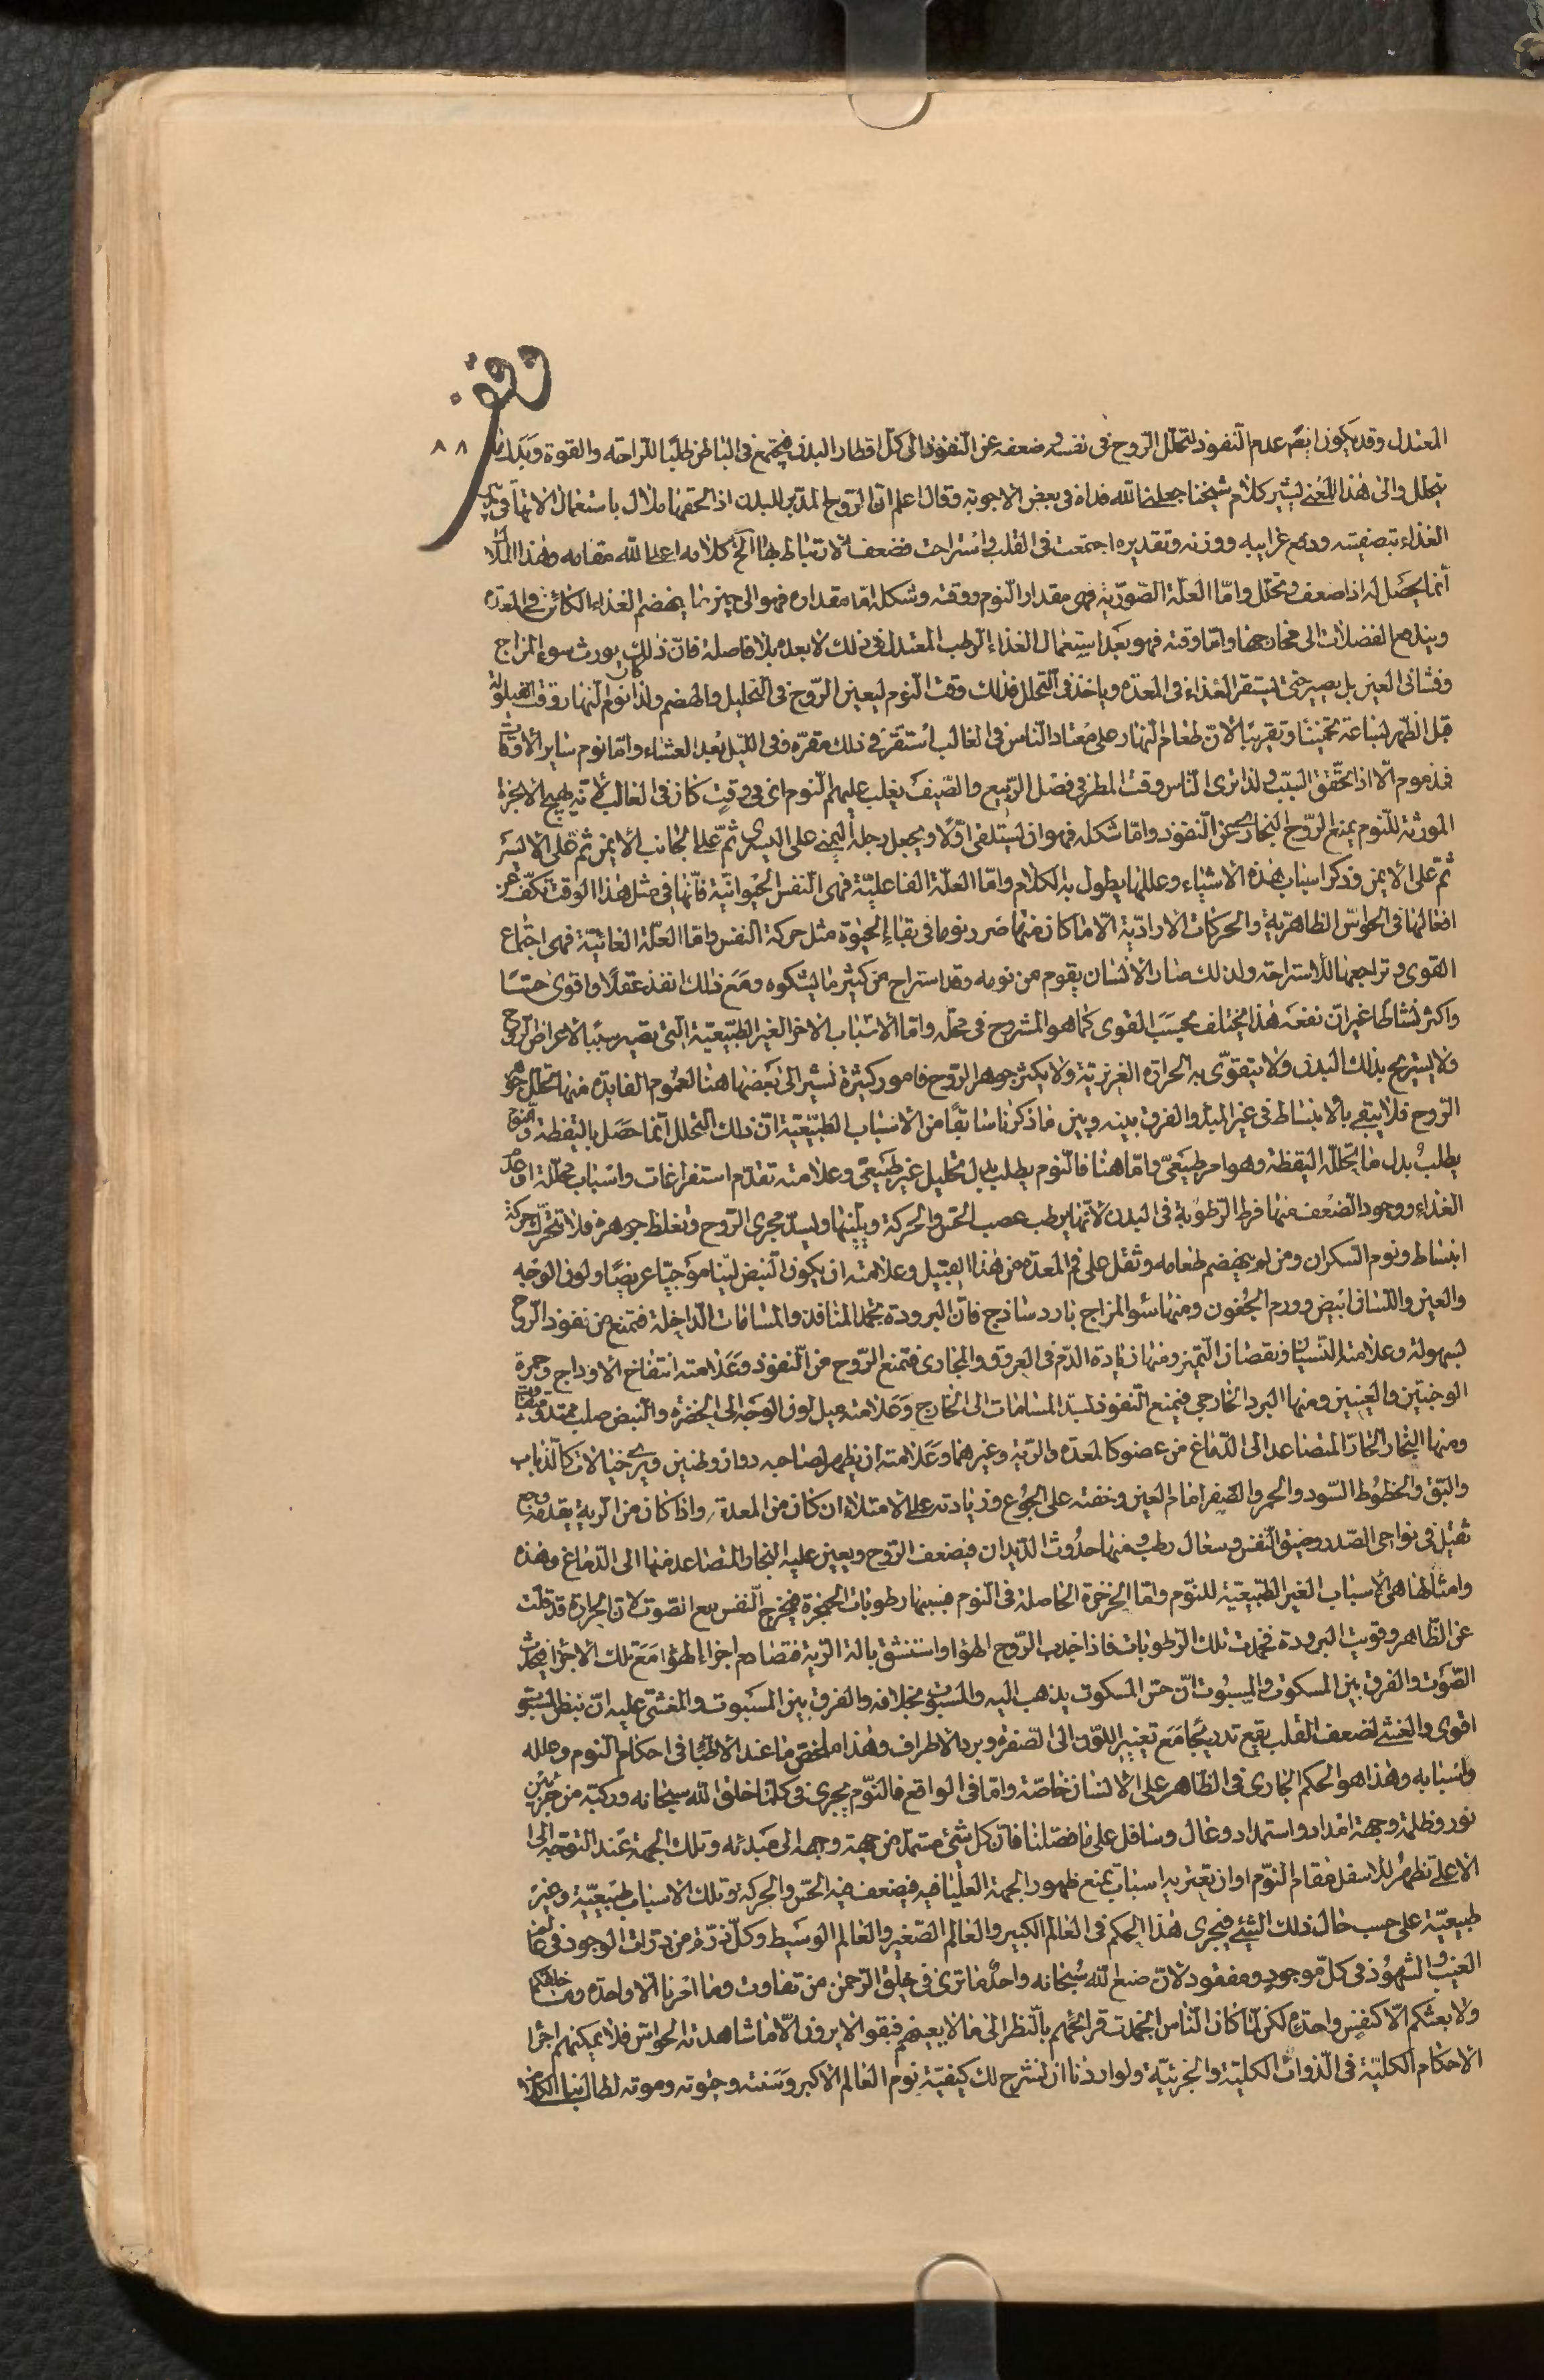 وقف
٨٨
المعتدل وقد يكون ايضا عدم النفوذ لتحلل الروح فى نفسه و ضعفه عن النفوذ الى كل اقطار البدن فيجتمع فى الباطن طلبا للراحة والقوة وبدل ما
يتحلل والى هذا المعنى يشير كلام شيخنا جعلنا الله فداه فى بعض الاجوبة وقال اعلم ان الروح المدبر للبدن اذا لحقها ملال باستعمال الاتها فى تدبير
الغذاء بتصفيته ودفع غرايبه ووزنه وتقديره اجتمعت فى القلب و استراحت فضعف الارتباط بها الخ كلامه اعلى الله مقامه وهذا الملال
انما يحصل له اذا ضعف و تحلل واما العلة الصورية فهى مقدار النوم ووقته وشكله اما مقداره فهو الى حين ما يهضم الغذاء الكائن فى المعدة
ويندفع الفضلات الى مخارجها واما وقته فهو بعد استعمال الغذاء الرطب المعتدل فى ذلك لا بعده بلا فاصلة فان ذلك يورث سوء المزاج
وغشاء فى العين بل يصبر حتى يستقر الغذاء فى المعدة وياخذ فى التحلل فذلك وقت النوم ليعين الروح فى التحليل والهضم ولذا كان نوم النهار وقت القيلولة
قبل الظهر بساعة تخمينا وتقريبا لان طعام النهار على معتاد الناس فى الغالب استقر فى ذلك مقره وفى الليل بعد العشاء واما نوم ساير الاوقات
فمذموم الا اذا تحقق السبب و لذا ترى الناس وقت المطر فى فصل الربيع والصيف يغلب عليهم النوم اى فى وقت كان فى الغالب لانه يهيج الابخرة
المورثة للنوم يمنع الروح البخارى عن النفوذ واما شكله فهو ان يستلقى اولا ويجعل رجله اليمنى على اليسرى ثم على الجانب الايمن ثم على الايسر
ثم على الايمن وذكر اسباب هذه الاشياء وعللها يطول به الكلام واما العلة الفاعلية فهى النفس الحيوانية فانها فى مثل هذا الوقت تكف عن
افعالها فى الحواس الظاهرية والحركات الارادية الا ما كان منها ضروريا فى بقاء الحيوة مثل حركة النفس واما العلة الغائية فهى اجتماع
القوى و تراجعها للاستراحة ولذلك صار الانسان يقوم من نومه وقد استراح من كثير ما يشكوه ومع ذلك انفذ عقلا واقوى حسا
واكثر نشاطا غير ان نفعه هذا يختلف بحسب القوى كما هو المشروح فى محله واما الاسباب الاخر الغير الطبيعية التى تصير سببا لاعراض الروح
ولا يستريح بذلك البدن ولا يتقوى به الحرارة الغريزية ولا يكثر جوهر الروح فامور كثيرة نشير الى بعضها هنا لعموم الفايدة منها تحلل جوهر
الروح فلا يبقى بالانبساط فى غير المبدء والفرق بينه وبين ما ذكرنا سابقا من الاسباب الطبيعية ان ذلك التحلل انما حصل باليقظة والنوم
يطلب بدل ما يحلله اليقظة وهو امر طبيعى واما هنا فالنوم يطلب بدل تحليل غير طبيعى وعلامته تقدم استفراغات واسباب محللة او عدم
الغذاء ووجود الضعف منها فرط الرطوبة فى البدن لانها يرطب عصب الحس والحركة ويلينها و يسد مجرى الروح وتغلظ جوهره فلا تتحرك حركة
انبساط ونوم السكران ومن لم يهضم طعامه وثقل على فم المعدة من هذا القبيل وعلامته ان يكون النبض لينا موجيا عريضا ولون الوجه
والعين واللسان ابيض وورم الجفون ومنها سوء المزاج بارد ساذج فان البرودة تجمد المنافذ والمسامات الداخلة فتمنع من نفوذ الروح
بسهولة وعلامته النسيان ونقصان التميز ومنها زيادة الدم فى العروق والمجارى فتمنع الروح من النفوذ وعلامته انتفاخ الاوداج وحمرة
الوجنتين والعينين ومنها البرد الخارجى فيمنع النفوذ لسد المسامات الى الخارج وعلامته ميل لون الوجه الى الخضرة والنبض صلب ممتد متفاوت
ومنها البخار الحار المتصاعد الى الدماغ من عضو كالمعدة والرية وغيرهما وعلامته ان يظهر لصاحبه دوار وطنين ويرى خيالات كالذباب
والبق والخطوط السود والحمر والصفر امام العين وخفته على الجوع وزيادته على الامتلاء ان كان من المعدة واذا كان من الرية يتقدمه وجع
ثقيل فى نواحى الصدر وضيق النفس وسعال رطب و منها حدوث الديدان فيضعف الروح ويعين عليه البخار المتصاعد منها الى الدماغ وهذه
وامثالها هى الاسباب الغير الطبيعية للنوم واما الخرخرة الحاصلة فى النوم فسببها رطوبات الحنجرة فيخرج النفس مع الصوت لان الحرارة قد قلت
عن الظاهر وقويت البرودة فجمدت تلك الرطوبات فاذا جذب الروح الهواء واستنشق بالة الرية فتصادم اجزاء الهواء مع تلك الاجزاء فيحدث
الصوت والفرق بين المسكوت والمسبوت ان حس المسكوت يذهب اليه والمسبوت بخلافه والفرق بين المسبوت والمغشى عليه ان نبض المسبوت
اقوى والغشى لضعف القلب يقع تدريجا مع تغيير اللون الى الصفرة وبرد الاطراف وهذا ملخص ما عند الاطباء فى احكام النوم وعلله
واسبابه وهذا هو الحكم الجارى فى الظاهر على الانسان خاصة واما فى الواقع فالنوم يجرى فى كلما خلق الله سبحانه وركبه من جزئين
نور وظلمة وجهة امداد واستمداد وعال وسافل على ما فصلنا فان كل شئ مستمد من جهة وجهه الى مبدئه وتلك الجهة عند التوجه الى
الاعلى تظهر للاسفل فقام النوم او ان تعتريه اسباب يمنع ظهور الجهة العليا فيه فيضعف فيه الحس والحركة وتلك الاسباب طبيعية وغير
طبيعية على حسب حال ذلك الشئ فيجرى هذا الحكم فى العالم الكبير والعالم الصغير والعالم الوسيط وكل ذرة من ذرات الوجود فى عالم
الغيب و الشهود فى كل موجود ومفقود لان صنع الله سبحانه واحد ما ترى فى خلق الرحمن من تفاوت وما امرنا الا واحدة وما خلقكم
ولا بعثكم الا كنفس واحدة لكن لما كان الناس انجمدت قرائحهم بالنظر الى ما لا يعينهم فبقوا لا يرون الا ما شاهدته الحواس فلا يمكنهم اجراء
الاحكام الكلية فى الذوات الكلية والجزئية ولو اردنا ان نشرح لك كيفية نوم العالم الاكبر وسنته وحيوته وموته لطال بنا الكلام